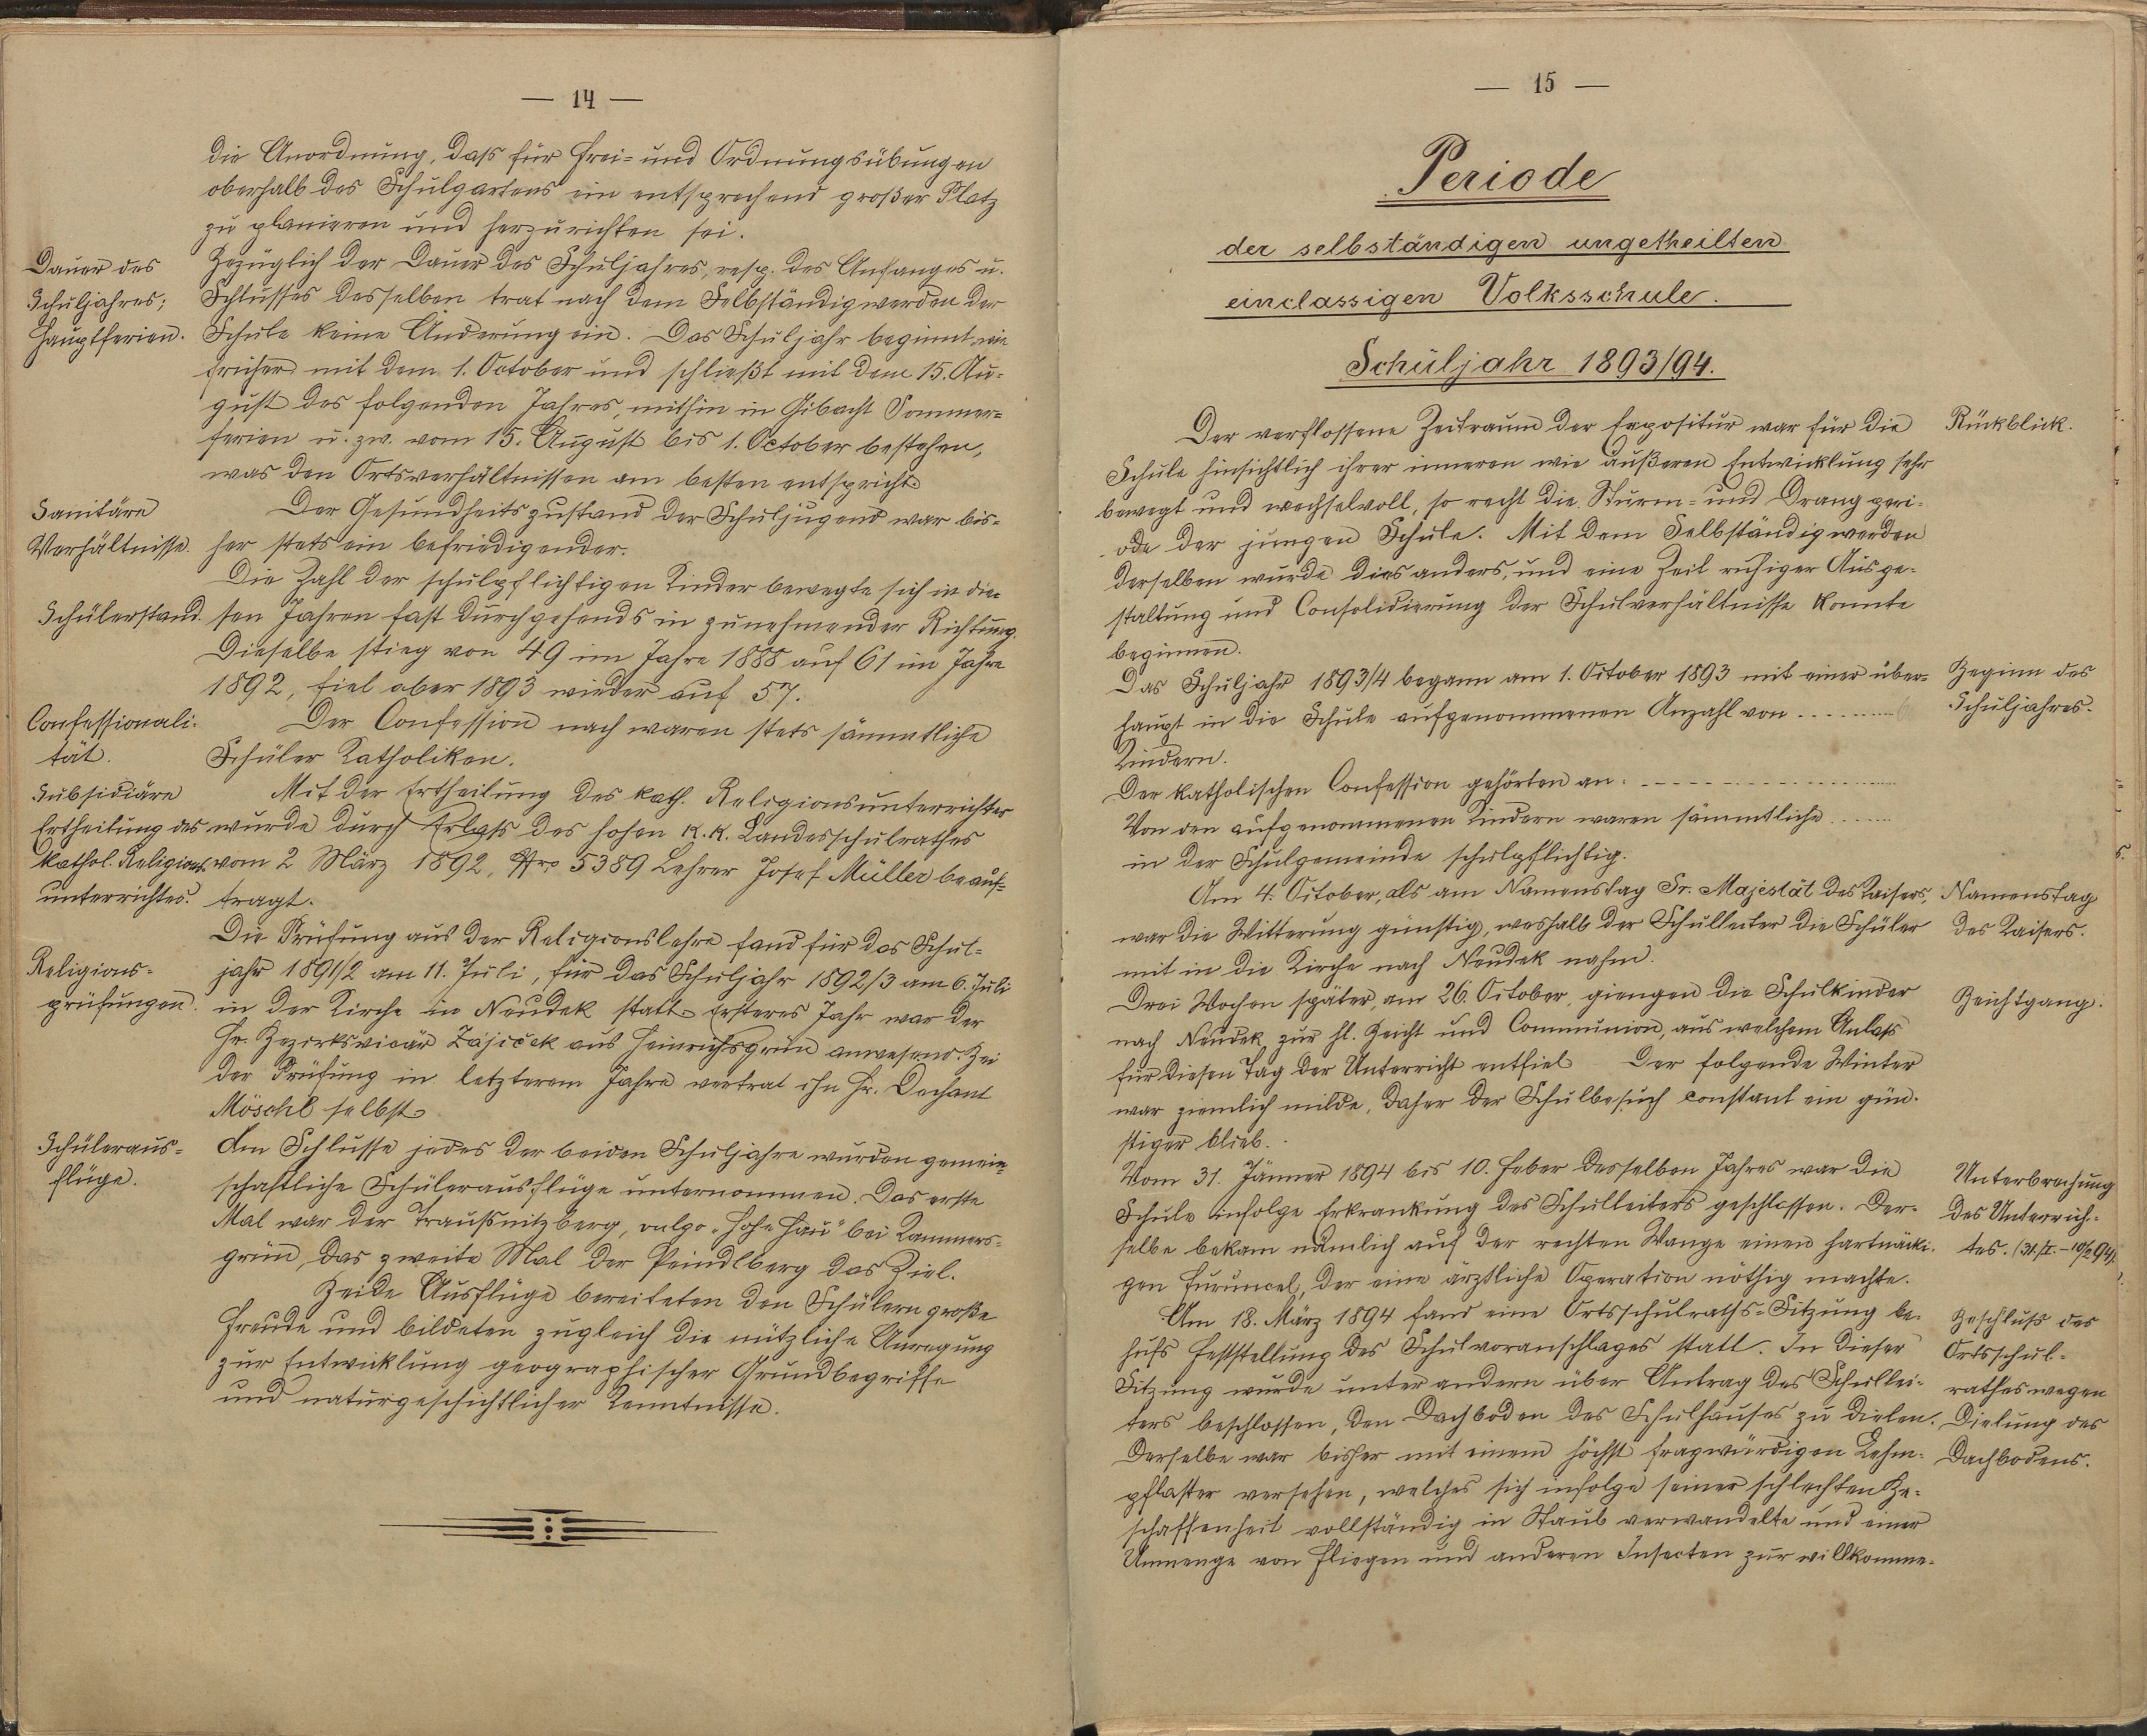 — 14 —
die Anordnung, daß für Frei= und Ordnungsübungen
oberhalb des Schulgartens ein entsprechend großer Platz
zu planieren und herzurichten sei.
Dauer des
Schuljahres;
Hauptferien.
Bezüglich der Dauer des Schuljahres, resp. des Anfanges u.
Schlusses desselben trat nach dem Selbständigwerden der
Schule keine Änderung ein. Das Schuljahr beginnt wie
früher mit dem 1. October und schließt mit dem 15. Au=
gust des folgenden Jahres, mithin in Gibacht Sommer=
ferien u. zw. vom 15. August bis 1. October bestehen,
was den Ortsverhältnissen am besten entspricht.
Sanitäre
Verhältnisse.
Der Gesundheitszustand der Schuljugend war bis=
her stets ein befriedigender.
Die Zahl der schulpflichtigen Kinder bewegte sich in die=
Schülerstand.
sen Jahren fast durchgehends in zunehmender Richtung.
Dieselbe stieg von 49 im Jahre 1888 auf 61 im Jahre
1892, fiel aber 1893 wieder auf 57.
Confessionali-
tät.
Der Confession nach waren stets sämmtliche
Schüler Katholiken.
Subsidiäre
Ertheilung des
kathol. Religions
unterrichtes.
Mit der Ertheilung des kath. Religionsunterrichtes
wurde durch Erlaß des hohen k. k. Landesschulrathes
vom 2 März 1892, Nro 5389 Lehrer Josef Müller beauf=
tragt.
Die Prüfung aus der Religionslehre fand für das Schul=
Religions=
prüfungen.
jahr 1891/2 am 11. Juli, für das Schuljahr 1892/3 am 6. Juli
in der Kirche in Neudek statt. Ersteres Jahr war der
Hr. Bezirksvicär Zajíček aus Heinrichsgrün anwesend. Bei
der Prüfung in letzterem Jahre vertrat ihn Hr. Dechant
Möschl selbst.
Schüleraus=
flüge.
Am Schlusse jedes der beiden Schuljahre wurden gemein=
schaftliche Schülerausflüge unternommen. Das erste
Mal war der Traußnitzberg, vulgo „Hohe Hau“ bei Kammers=
grün, das zweite Mal der Peindlberg das Ziel.
Beide Ausflüge bereiteten den Schülern große
Freude und bildeten zugleich die nützliche Anregung
zur Entwicklung geographischer Grundbegriffe
und naturgeschichtlicher Kenntnisse.
— 15 —
Periode
der selbständigen ungetheilten
einclassigen Volksschule.
Schuljahr 1893/94.
Der verflossene Zeitraum der Expositur war für die
Rückblick.
Schule hinsichtlich ihrer inneren wie äußeren Entwicklung sehr
bewegt und wechselvoll, so recht die Sturm= und Drangperi-
ode der jungen Schule. Mit dem Selbständigwerden
derselben wurde dies anders, und eine Zeit ruhiger Ausge-
staltung und Consolidierung der Schulverhältnisse konnte
beginnen.
Das Schuljahr 1893/4 begann am 1. October 1893 mit einer über-
Beginn des
Schuljahres.
haupt in die Schule aufgenommenen Anzahl von
Kindern.
Der katholischen Confession gehörten an
Von den aufgenommenen Kindern waren sämmtliche
in der Schulgemeinde schulpflichtig.
Am 4. October, als am Namenstag Sr. Majestät des Kaisers,
Namenstag
des Kaisers.
war die Witterung günstig, weshalb der Schulleiter die Schüler
mit in die Kirche nach Neudek nahm.
Drei Wochen später, am 26. October, giengen die Schulkinder
Beichtgang.
nach Neudek zur hl. Beicht und Communion, aus welchem Anlaß
für diesen Tag der Unterricht entfiel Der folgende Winter
war ziemlich milde, daher der Schulbesuch constant ein gün-
stiger blieb.
Vom 31. Jänner 1894 bis 10. Feber desselben Jahres war die
Unterbrechung
des Unterrich=
tes. (31./I.–10/2 94).
Schule infolge Erkrankung des Schulleiters geschlossen. Der-
selbe bekam nämlich auf der rechten Wange einen hartnäcki-
gen Furuncel, der eine ärztliche Operation nöthig machte.
Am 18. März 1894 fand eine Ortsschulraths=Sitzung be-
Beschluß des
Ortsschul=
rathes wegen
Dielung des
Dachbodens.
hufs Feststellung des Schulvoranschlages statt. In dieser
Sitzung wurde unter andern über Antrag des Schullei-
ters beschlossen, den Dachboden des Schulhauses zu dielen.
Derselbe war bisher mit einem höchst fragwürdigen Lehm-
pflaster versehen, welches sich infolge seiner schlechten Be-
schaffenheit vollständig in Staub verwandelte und einer
Unmenge von Fliegen und anderen Insecten zur willkomme-